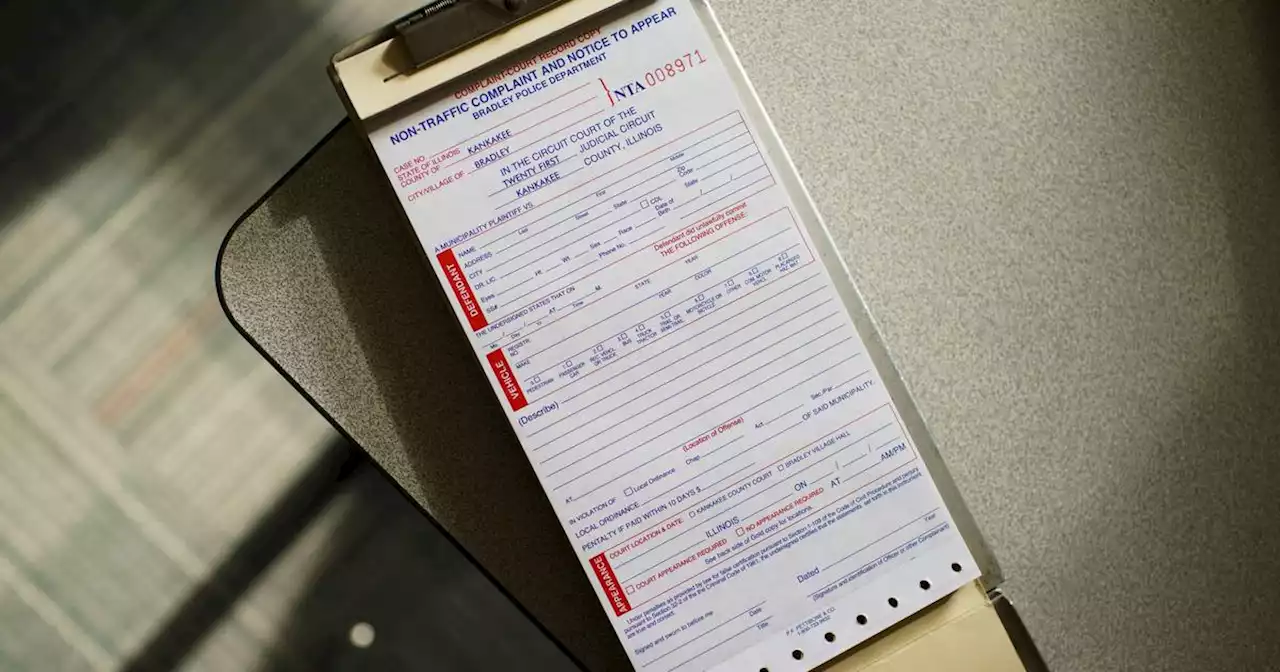 COMPLAINT-COURT RECORD COPY
NON-TRAFFIC COMPLAINT AND NOTICE TO APPEAR
BRADLEY POLICE DEPARTMENT
CASE NO.
} NTA 008971
STATE OF ILLINOIS
COUNTY OF KANKAKEE
CITY/VILLAGE OF BRADLEY
IN THE CIRCUIT COURT OF THE
TWENTY FIRST JUDICIAL CIRCUIT
KANKAKEE COUNTY, ILLINOIS
A MUNICIPALITY PLAINTIFF VS.
DEFENDANT
NAME
Last First Middle
ADDRESS
Street State Zip Code
CITY
DR. LIC. CDL State
Eyes Ht. Wt. Sex Race Date of Birth / /
SS# Phone No.
THE UNDERSIGNED STATES THAT ON
Defendant did unlawfully commit
THE FOLLOWING OFFENSE:
Mo. / Day / Yr. AT Time M.
VEHICLE
REGISTR. NO. STATE YEAR
MAKE YEAR COLOR
PEDESTRIAN
PASSENGER CAR
REC. VEHCL. OR TRUCK
BUS
TRUCK TRACTOR
TRAIL OR SEMI TRAIL
MOTORCYCLE OR
OTHER
COM. MOTOR VEHCL.
PLACARDED HAZ. MAT.
(Describe)
AT
(Location of Offense)
IN VIOLATION OF Local Ordinance Chap. Act Sec./Par.
LOCAL ORDINANCE OF SAID MUNICIPALITY.
PENALTY IF PAID WITHIN 10 DAYS $
APPEARANCE
COURT LOCATION & DATE: KANKAKEE COUNTY COURT BRADLEY VILLAGE HALL
ILLINOIS ON / / AT AM/PM
COURT APPEARANCE REQUIRED NO APPEARANCE REQUIRED
See back side of Gold copy for locations.
Under penalties as provided by law for false certification pursuant to Section 1-109 of the Code of Civil Procedure and perjury
pursuant to Section 32-2 of the Criminal Code of 1961, the undersigned certifies that the statements set forth in this instrument
are true and correct.
Signed and sworn to before me
Date
Title
Dated Year
(Signature and identification of Officer or other Complainant)
P.F. PETTIBONE & CO.